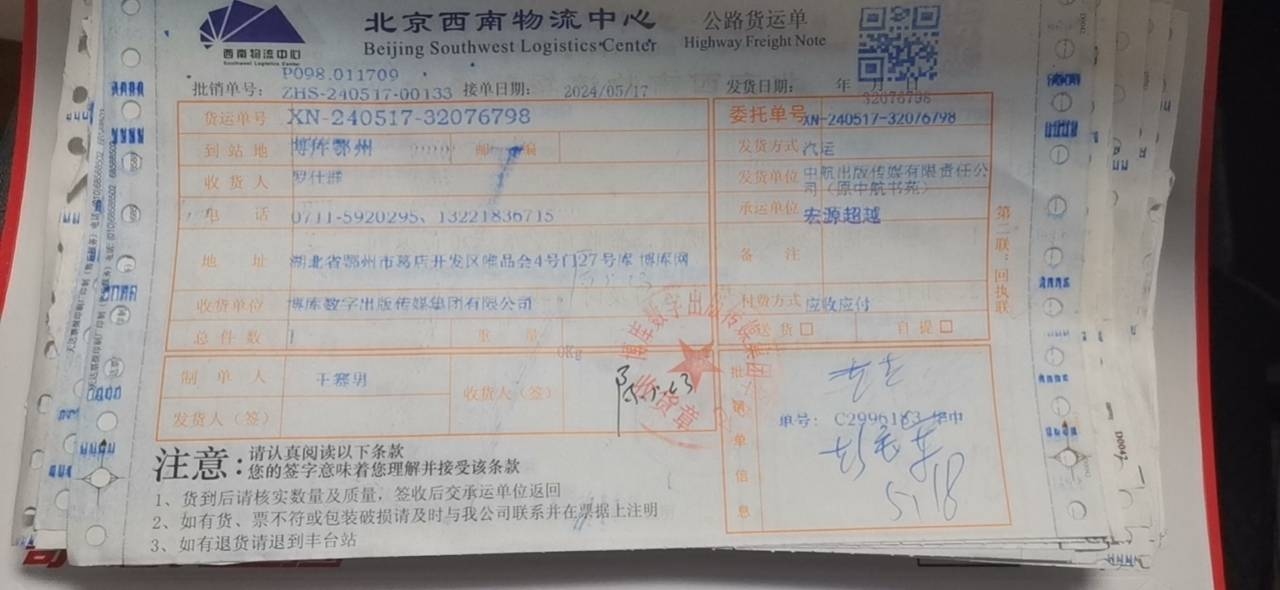 西南物流中心
Southwest Logistics Center
北京西南物流中心
Beijing Southwest Logistics Center
公路货运单
Highway Freight Note
P098.011709
批销单号： ZHS-240517-00133 接单日期： 2024/05/17
发货日期： 年 月 日
32076798
货运单号 XN-240517-32076798
委托单号 XN-240517-32076798
到站地 博库鄂州 邮 编
发货方式 汽运
收货人
发货单位 中航出版传媒有限责任公司（原中航书苑）
电 话 0711-5920295、13221836715
承运单位 宏源超越
地 址 湖北省鄂州市葛店开发区唯品会4号门27号库 博库网
备 注
收货单位 博库数字出版传媒集团有限公司
付费方式 应收应付
总件数 1 重 量 0Kg
送货□ 自提□
制单人 王赛男
收货人（签）
发货人（签）
收货章
批销单信息
单号： C2996183
5/18
第二联：回执联
注意：请认真阅读以下条款
您的签字意味着您理解并接受该条款
1、货到后请核实数量及质量，签收后交承运单位返回
2、如有货、票不符或包装破损请及时与我公司联系并在票据上注明
3、如有退货请退到丰台站